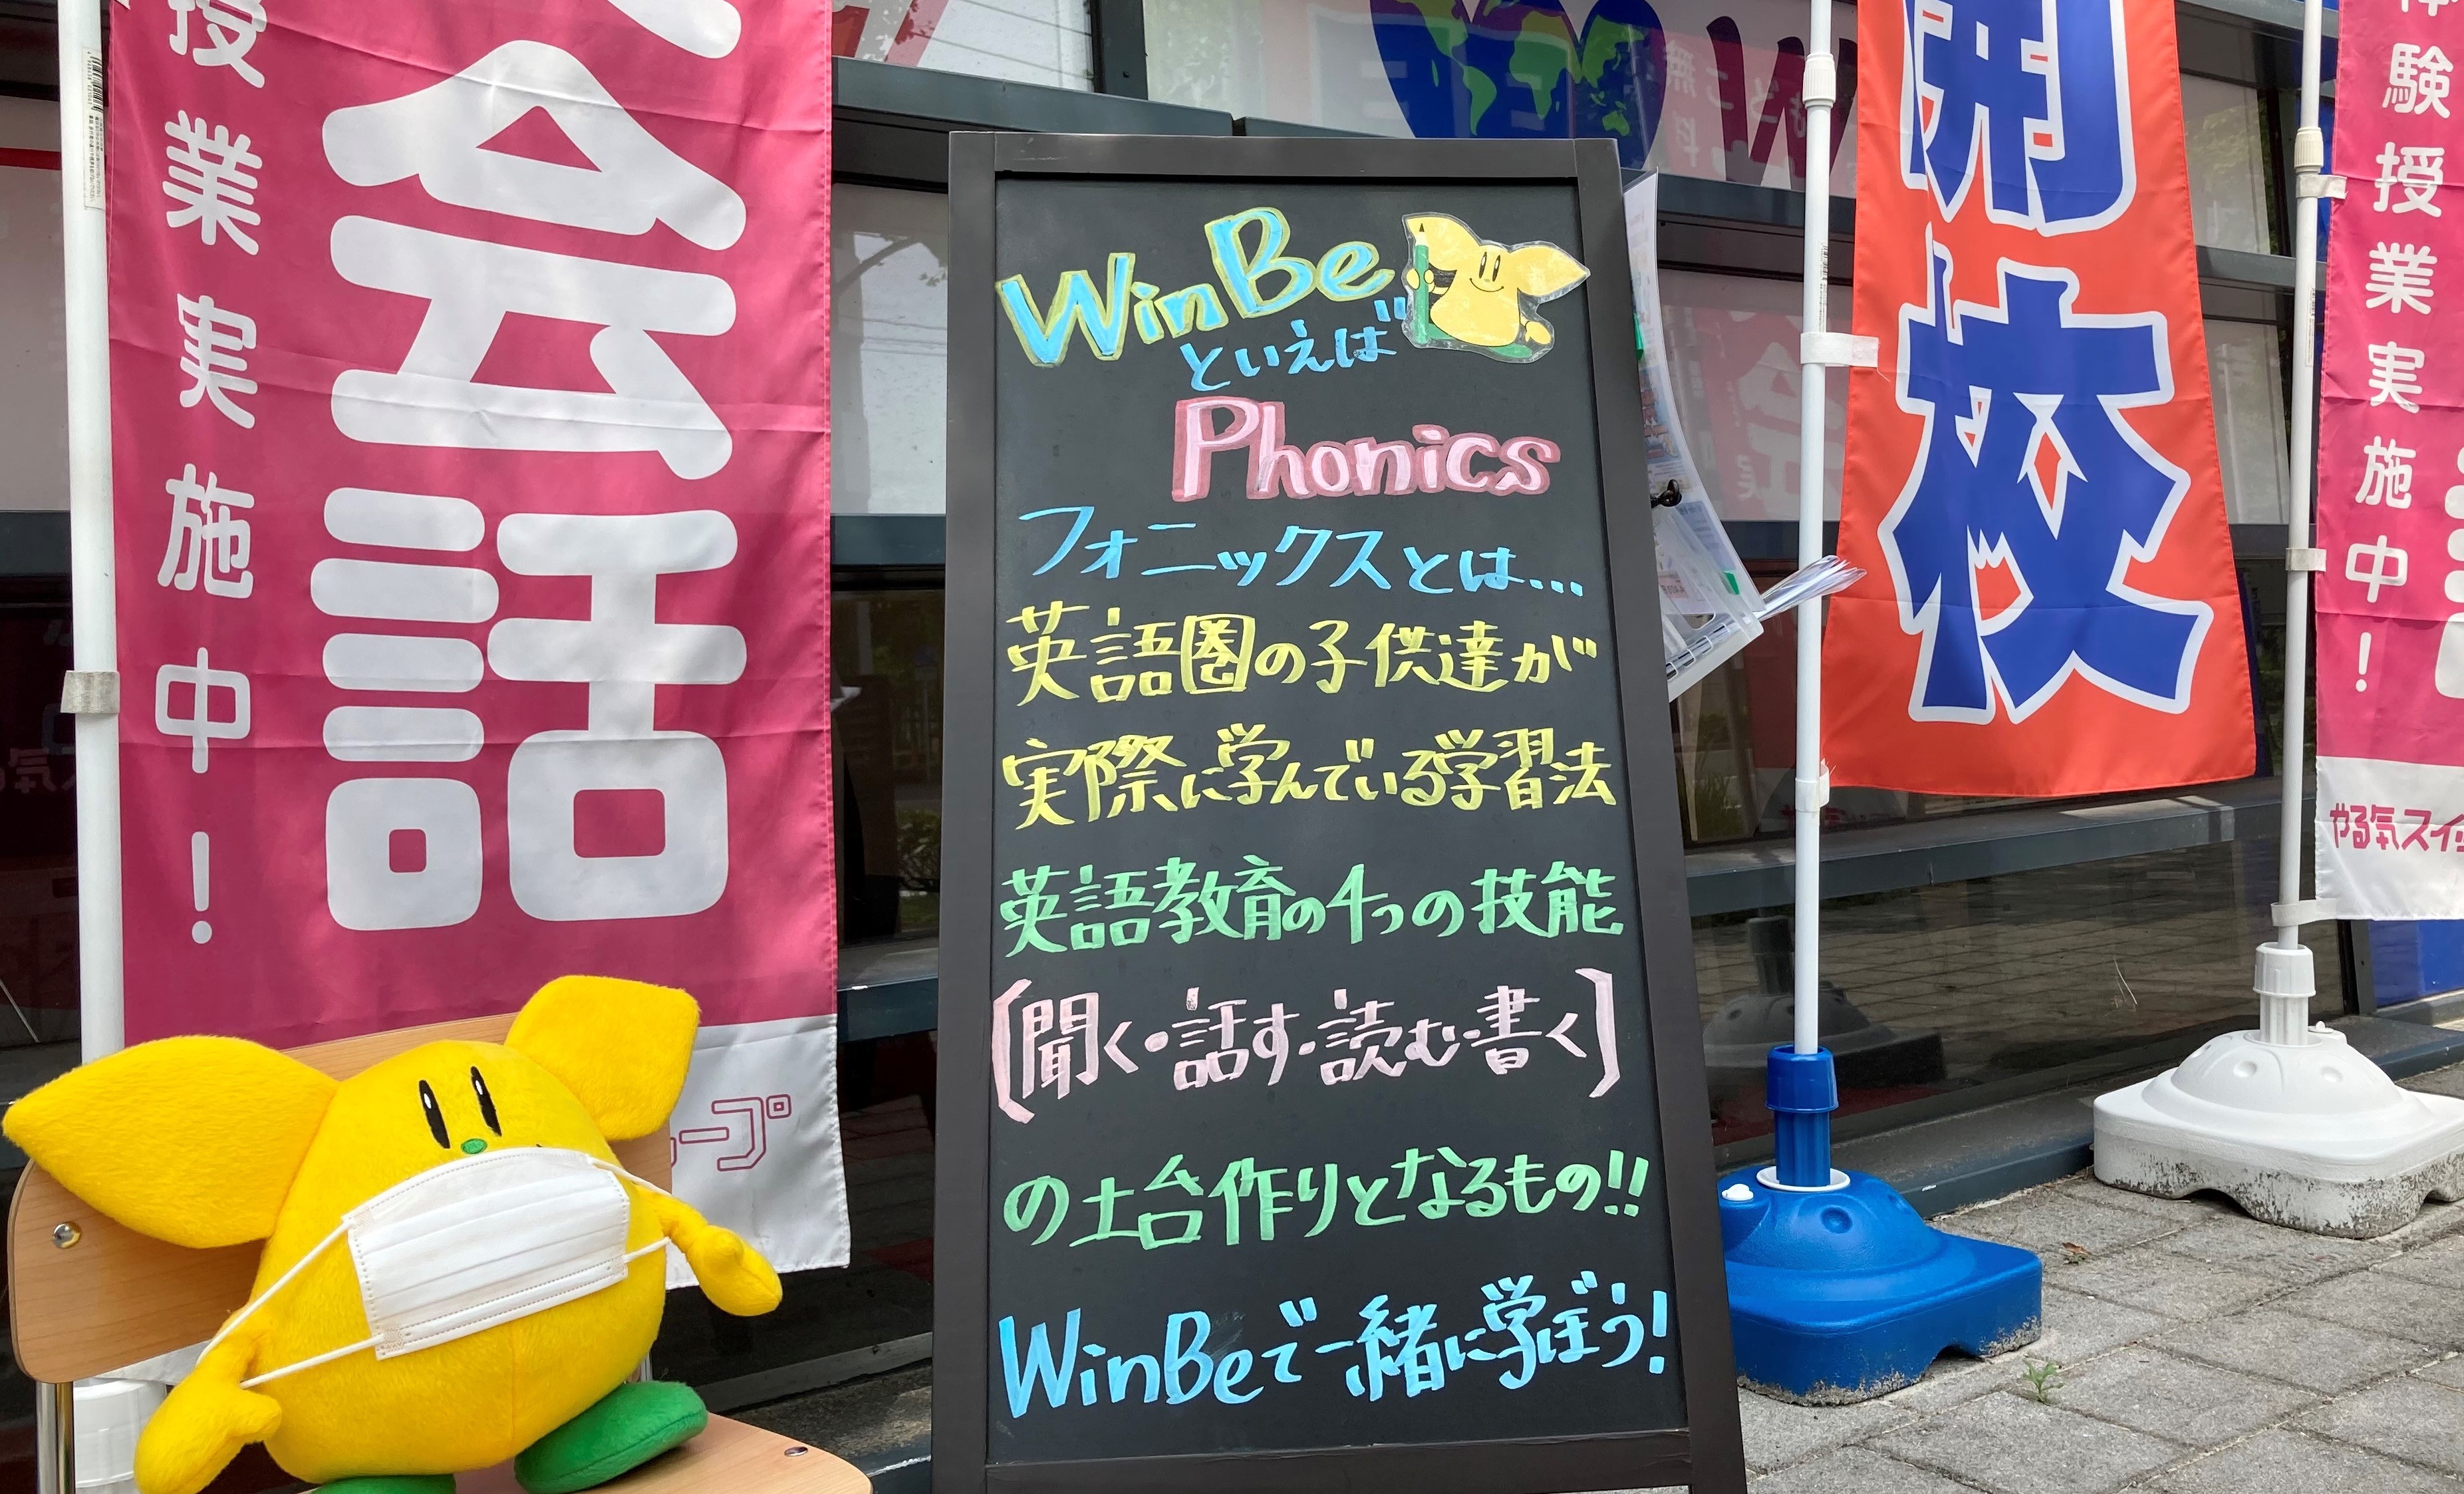 授業実施中！
会話
ープ
WinBe
といえば
Phonics
フォニックスとは...
英語圏の子供達が
実際に学んでいる学習法
英語教育の4つの技能
(聞く・話す・読む・書く)
の土台作りとなるもの!!
WinBeで一緒に学ぼう!
開校
体験授業実施中！
やる気スイ